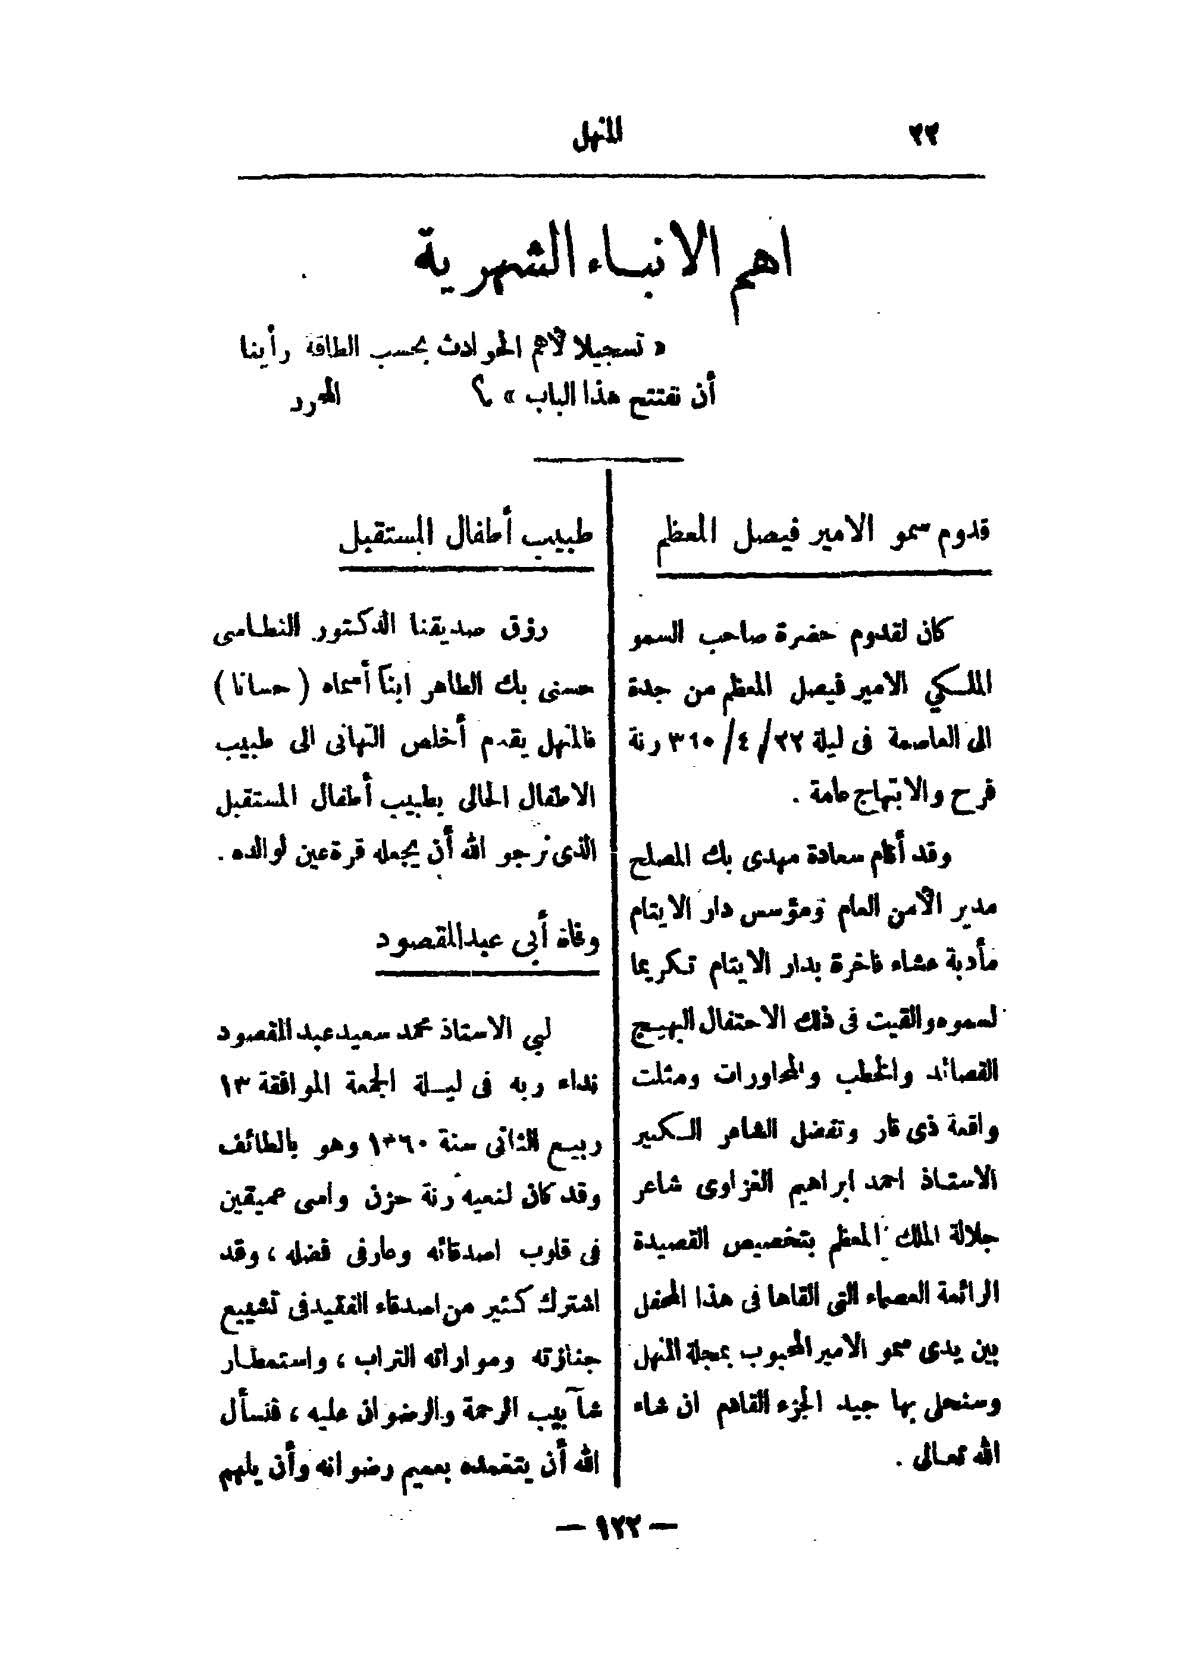 ٢٢
المنهل
اهم الانباء الشهرية
« تسجيلا لأهم الحوادث بحسب الطاقة رأينا
أن نفتتح هذا الباب » ؟ المحرر
قدوم سمو الامير فيصل المعظم
كان لقدوم حضرة صاحب السمو
الملكي الامير فيصل المعظم من جدة
الى العاصمة فى ليلة ٢٢/٤/٣٦٠ رنة
فرح والابتهاج عامة .
وقد أقام سعادة مهدى بك المصلح
مدير الأمن العام ومؤسس دار الايتام
مأدبة عشاء فاخرة بدار الايتام تكريما
لسموه والقيت فى ذلك الاحتفال البهيج
القصائد والخطب والمحاورات ومثلت
واقعة ذى قار وتفضل الشاعر الكبير
الاستاذ احمد ابراهيم الغزاوى شاعر
جلالة الملك المعظم بتخصيص القصيدة
الرائعة العصماء التى القاها فى هذا المحفل
بين يدى سمو الامير المحبوب بمجلة المنهل
وسنحلى بها جيد الجزء القادم ان شاء
الله تعالى .
طبيب أطفال المستقبل
رزق صديقنا الدكتور النطاسى
حسنى بك الطاهر ابناً أسماه ( حسانا )
فالمنهل يقدم أخلص التهانى الى طبيب
الاطفال الحالى بطبيب أطفال المستقبل
الذى نرجو الله أن يجعله قرة عين لوالده .
وفاة أبي عبدالمقصود
لبي الاستاذ محمد سعيد عبد المقصود
نداء ربه فى ليلة الجمعة الموافقة ١٣
ربيع الثانى سنة ١٣٦٠ وهو بالطائف
وقد كان لنعيه رنة حزن واسى عميقين
فى قلوب اصدقائه وعارفى فضله ، وقد
اشترك كثير من اصدقاء الفقيد فى تشييع
جنازته ومواراته التراب ، واستمطار
شآبيب الرحمة والرضوان عليه ، فنسأل
الله أن يتغمده بعميم رضوانه وأن يلهم
— ١٢٢ —